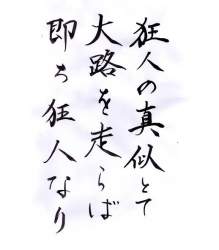 狂人の真似とて
大路を走らば
即ち狂人なり